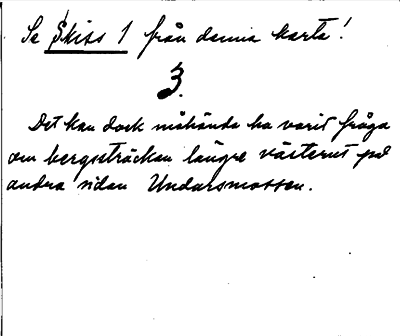 Se Skiss 1 från denna karta!
3.
Det kan dock måhända ha varit fråga
om bergssträckan längre västerut på
andra sidan Undarsmossen.